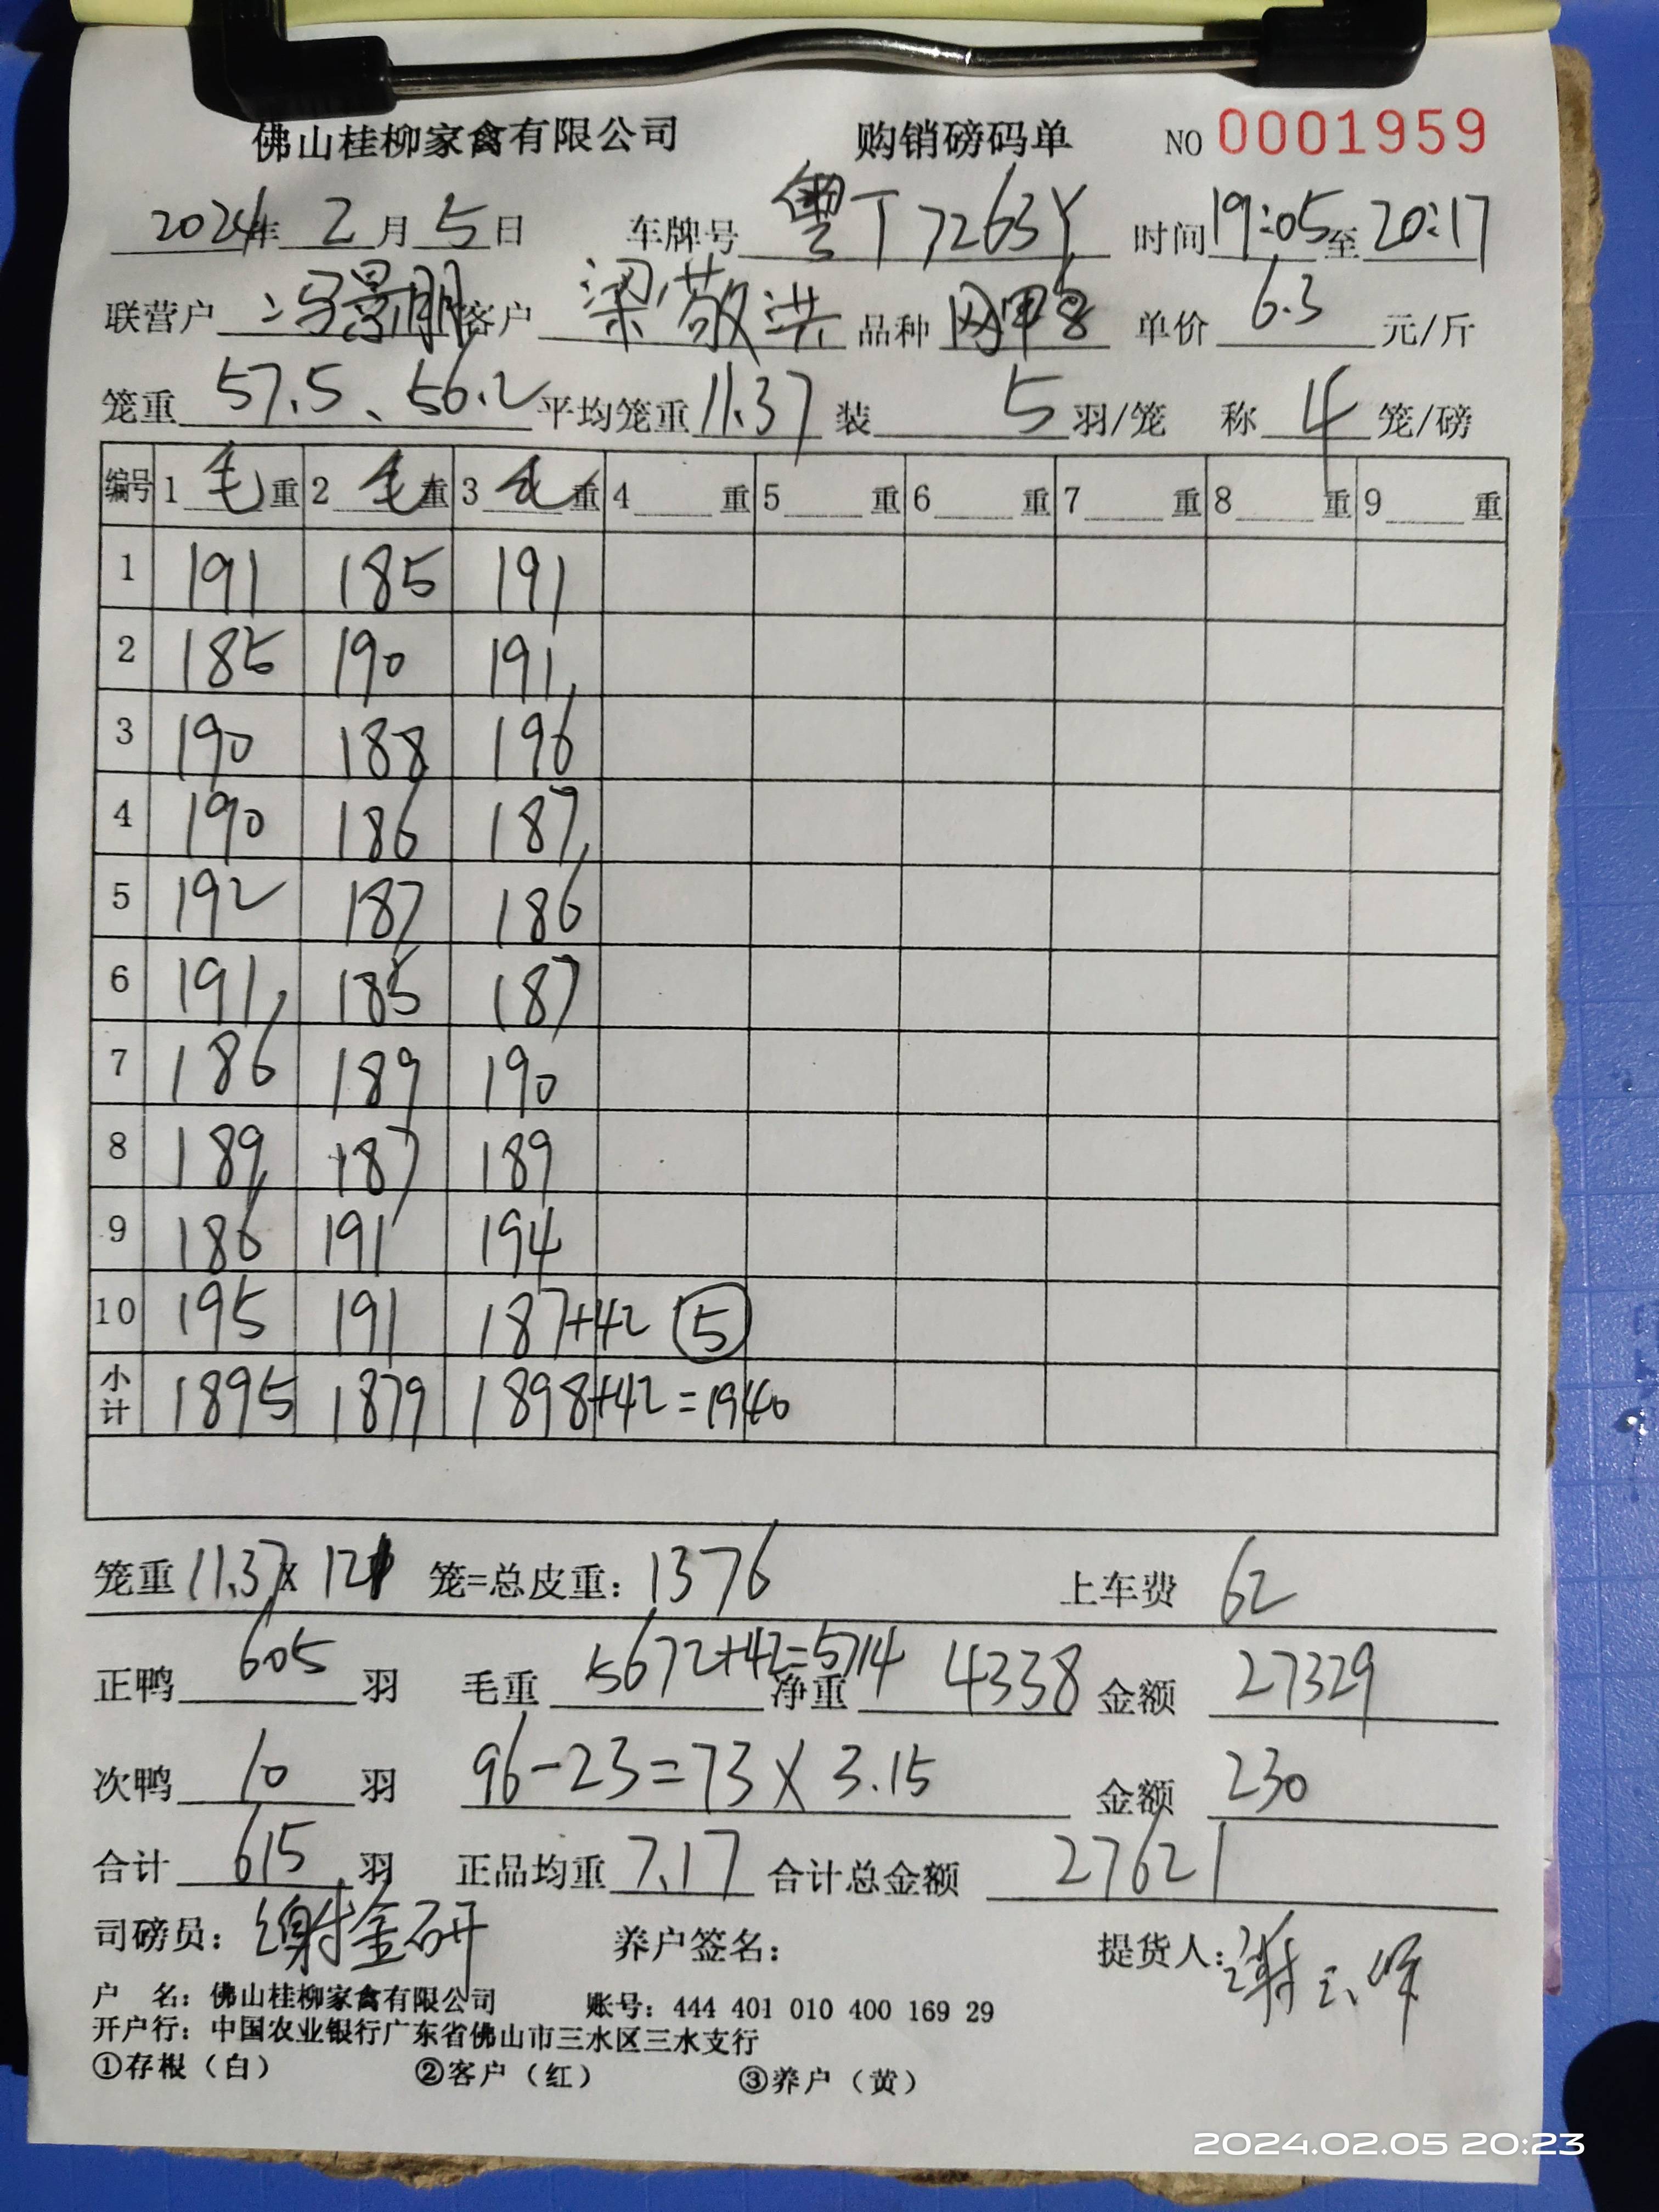 佛山桂柳家禽有限公司 购销磅码单 NO 0001959
2024年 2 月 5 日 车牌号 粤T7263Y 时间 19:05 至 20:17
联营户 冯景朋 客户 梁敬洪 品种 单价 6.3 元/斤
笼重 57.5、56.2 平均笼重 11.37 装 5 羽/笼 称 4 笼/磅
编号 1 毛 重 2 毛 重 3 毛 重 4 重 5 重 6 重 7 重 8 重 9 重
1 191 185 191
2 185 190 191
3 190 188 196
4 190 186 187
5 192 187 186
6 191 185 187
7 186 189 190
8 189 187 189
9 186 191 194
10 195 191 187+42 ⑤
小计 1895 1879 1898+42=1940
笼重 11.37 x 121 笼=总皮重: 1376 上车费 62
正鸭 605 羽 毛重 5672+42=5714 净重 4338 金额 27329
次鸭 10 羽 96-23=73 X 3.15 金额 230
合计 615 羽 正品均重 7.17 合计总金额 27621
司磅员: 谢金研 养户签名: 提货人:
户 名: 佛山桂柳家禽有限公司 账号: 444 401 010 400 169 29
开户行: 中国农业银行广东省佛山市三水区三水支行
①存根（白） ②客户（红） ③养户（黄）
2024.02.05 20:23